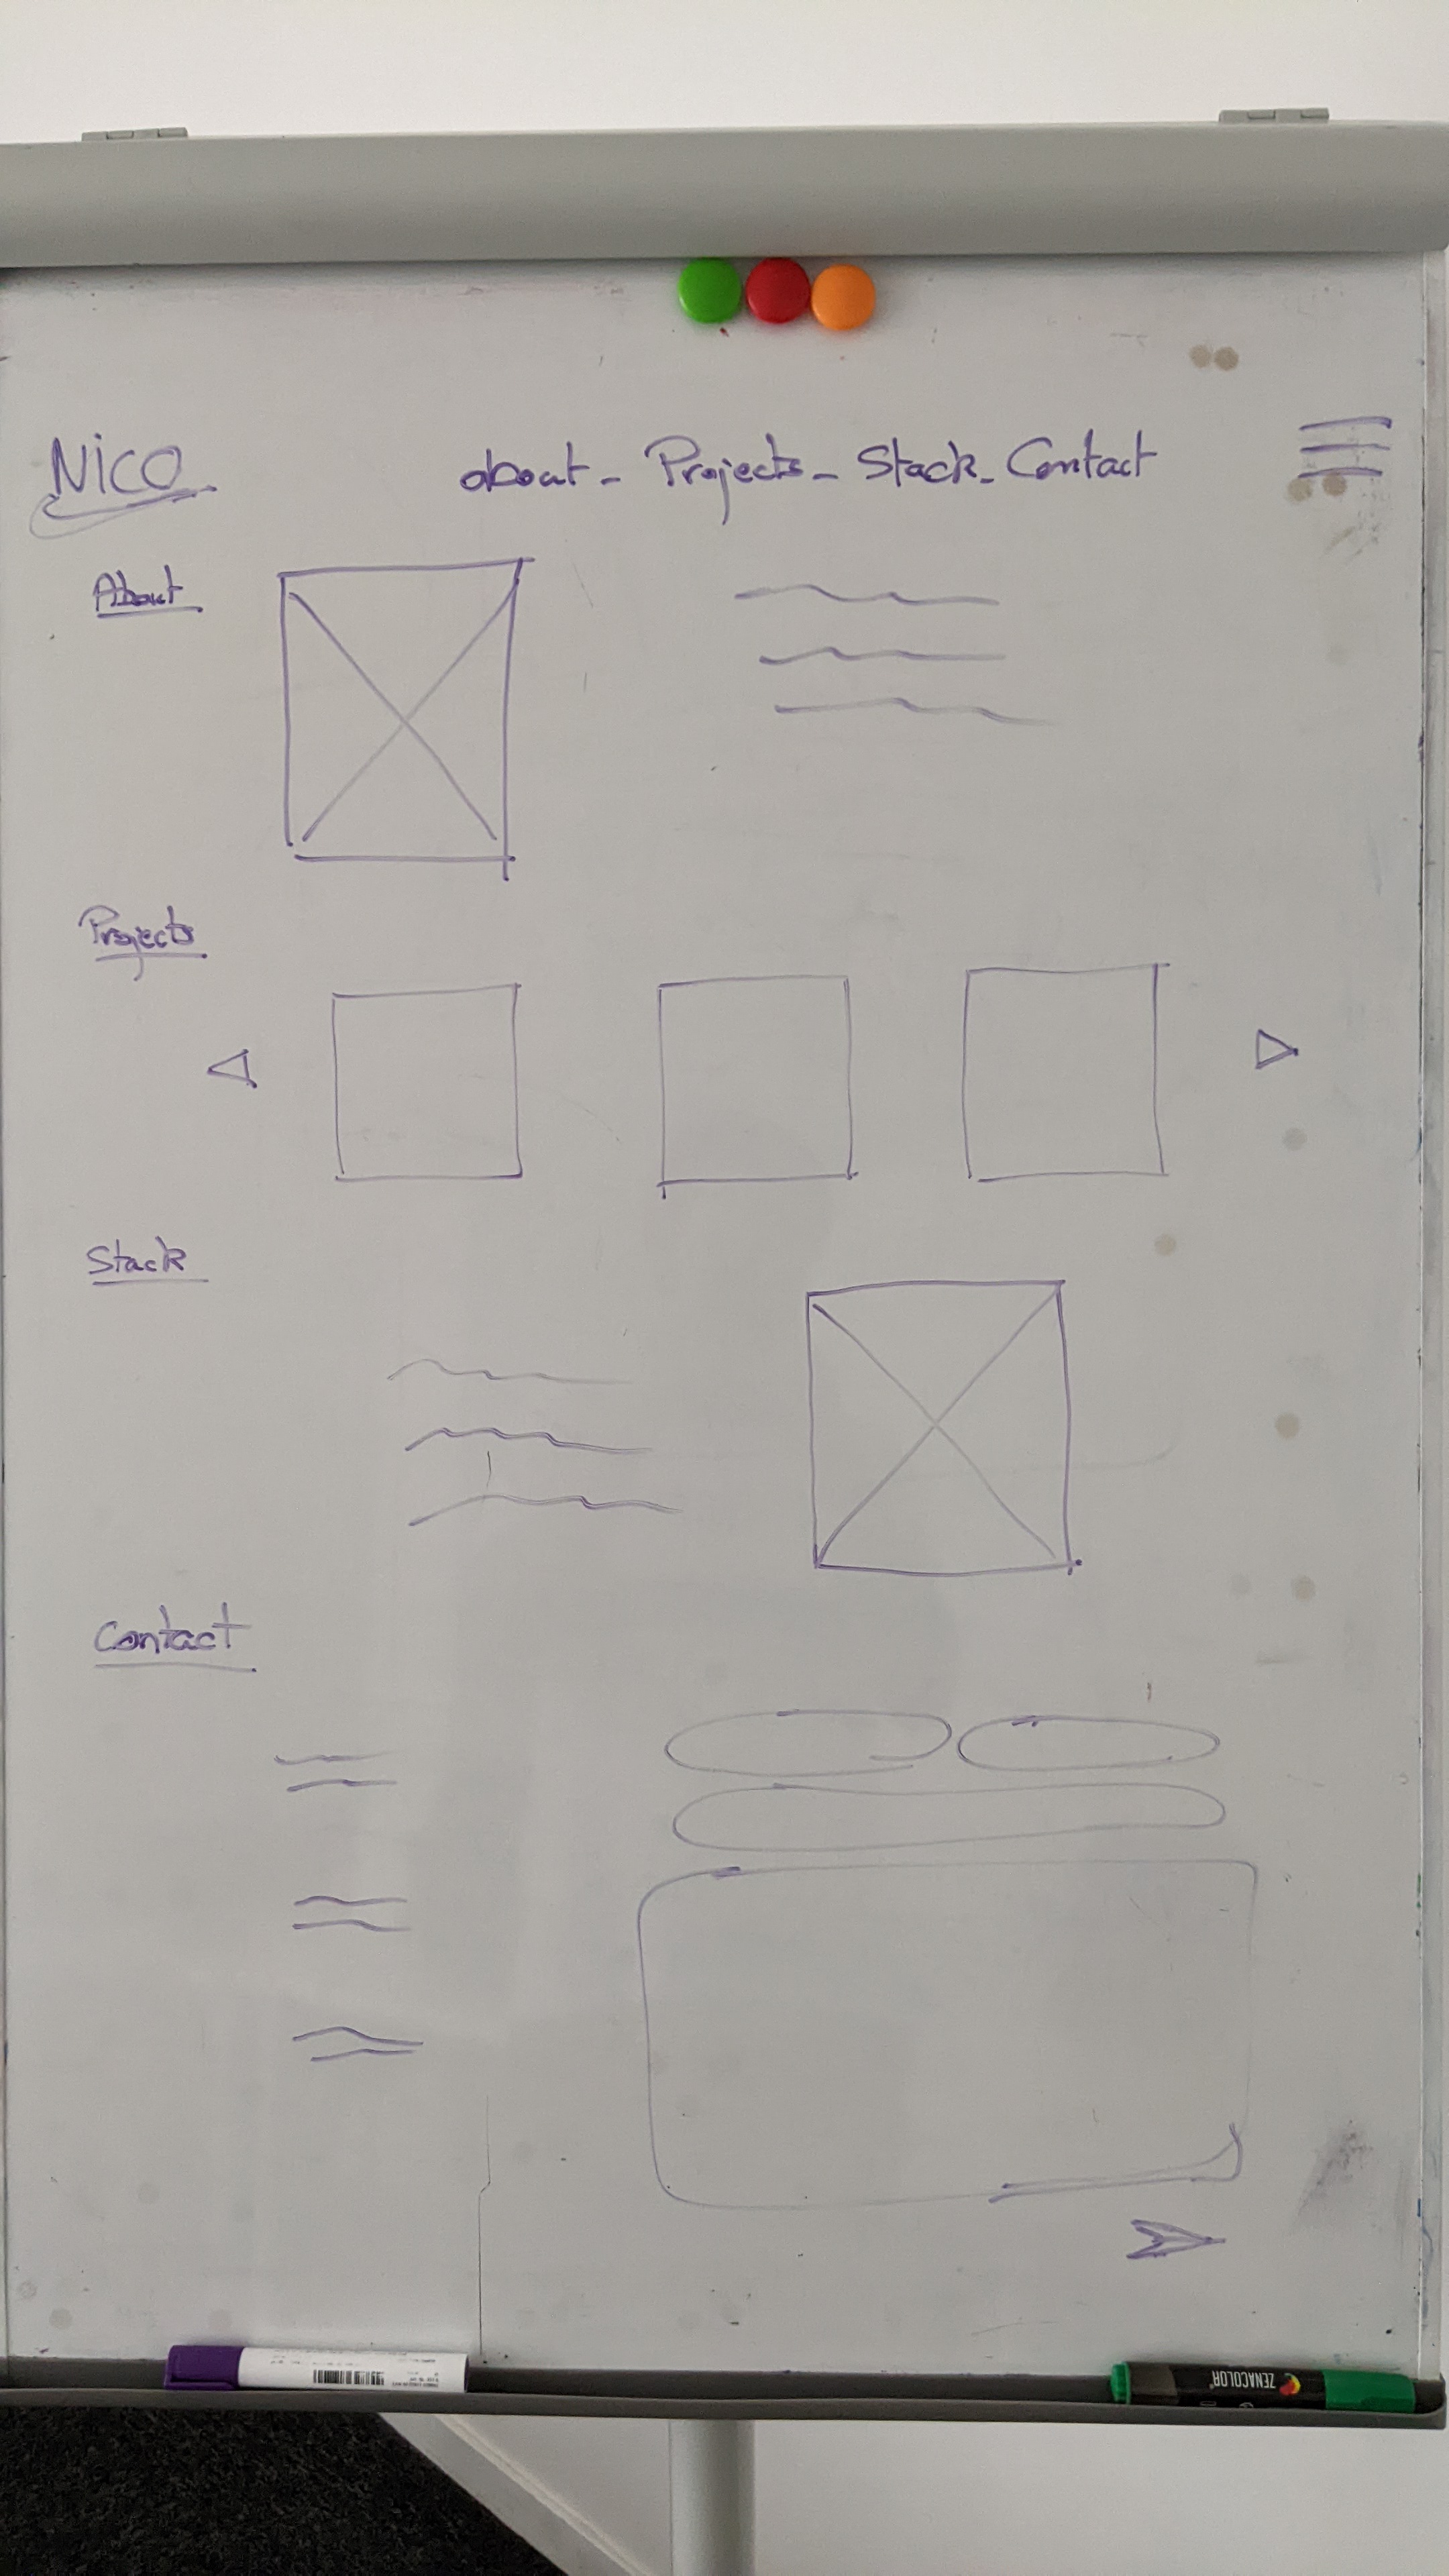 NICO
about - Projects - Stack - Contact
About
Projects
Stack
Contact
ZENACOLOR